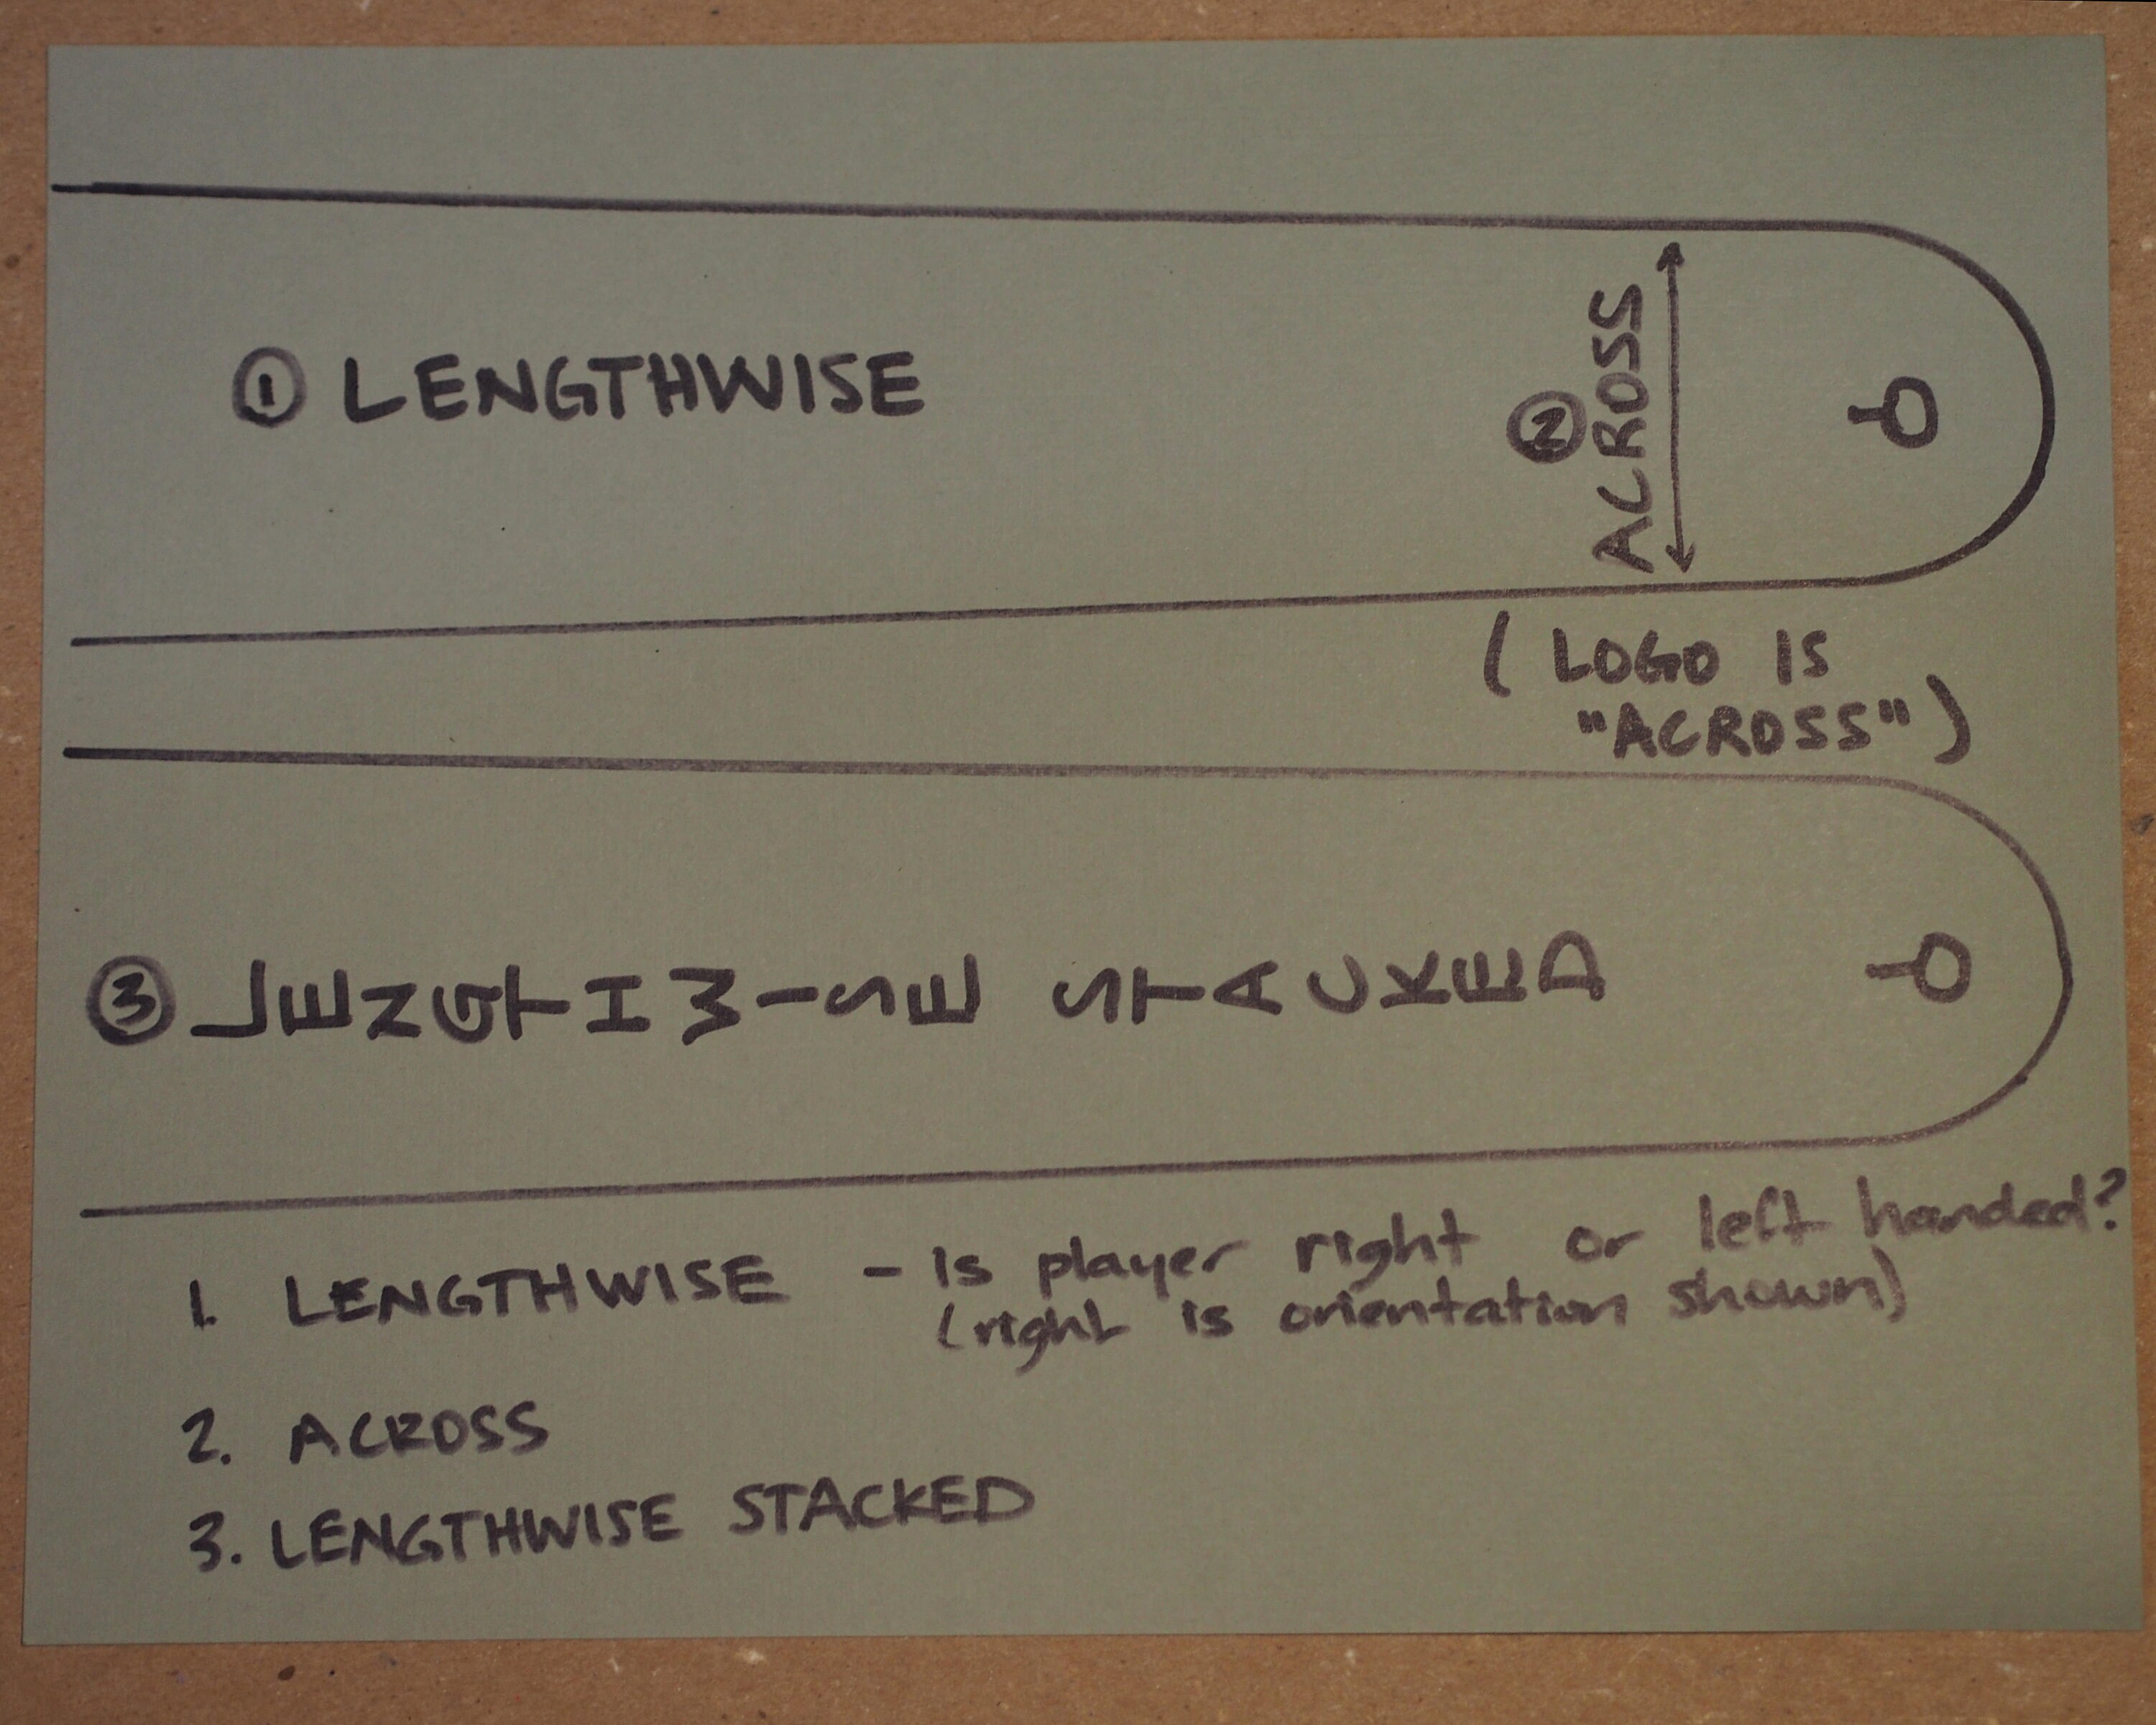 ① LENGTHWISE
②
ACROSS
( LOGO IS
"ACROSS")
③ LENGTHWISE STACKED
1. LENGTHWISE - Is player right or left handed?
(right is orientation shown)
2. ACROSS
3. LENGTHWISE STACKED